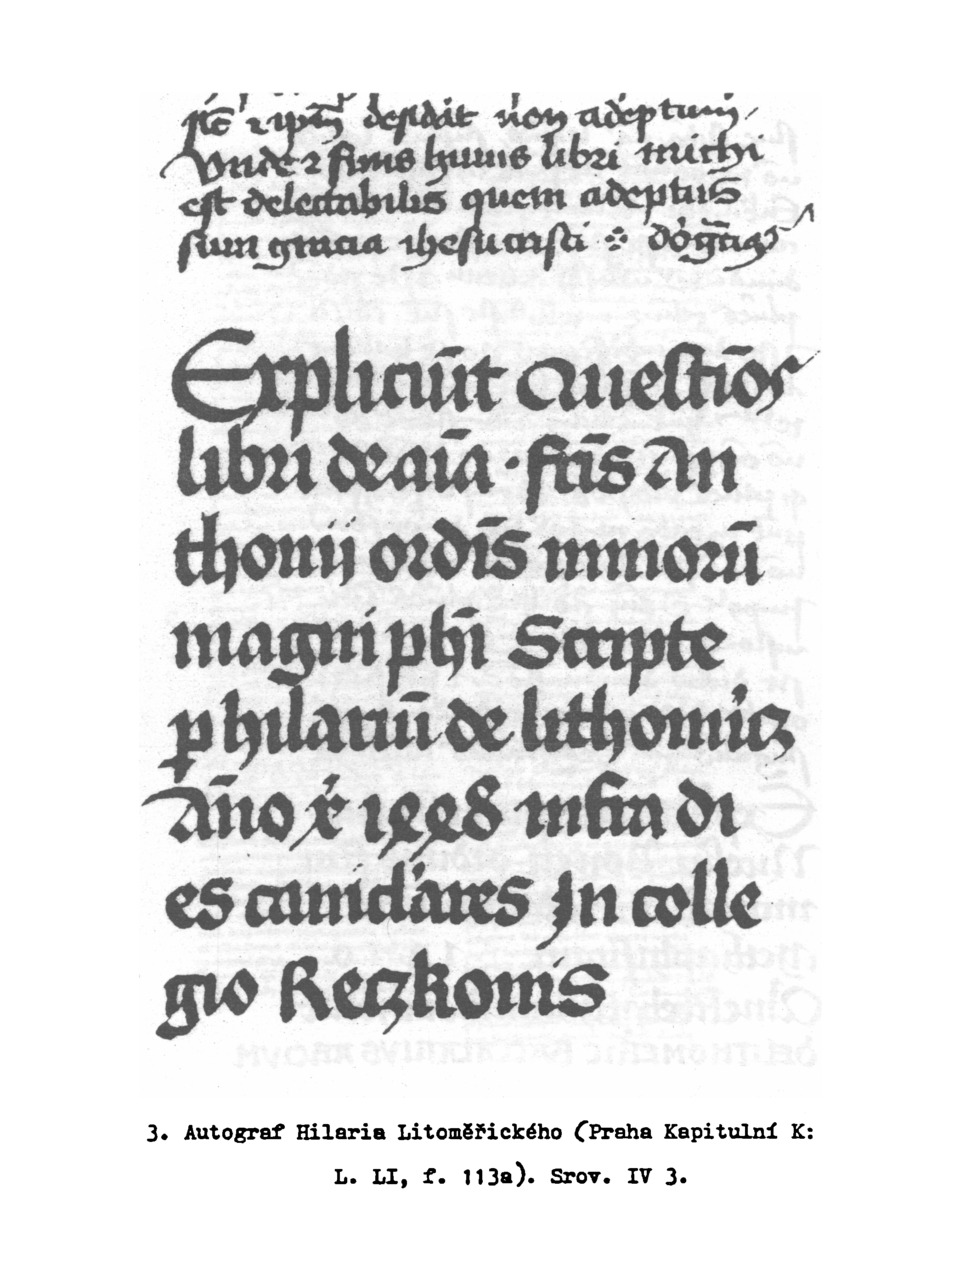 sic̄ ⁊ ip̄m desidāt non adeptum
Vnde ⁊ finis huius libri michi
est delectabilis quem adeptus
sum gracia ihesu cristi
Expliciūt Questio͞es
libri de aīa · fr̄is An
thonij ordīs minorū
magni ph̄i Scripte
ꝑ hilariū de lithomicz
Año xͥ 1448 infra di
es caniclares In colle
gio Reczkonis
3. Autograf Hilaria Litoměřického (Praha Kapitulní K:
L. LI, f. 113a). Srov. IV 3.